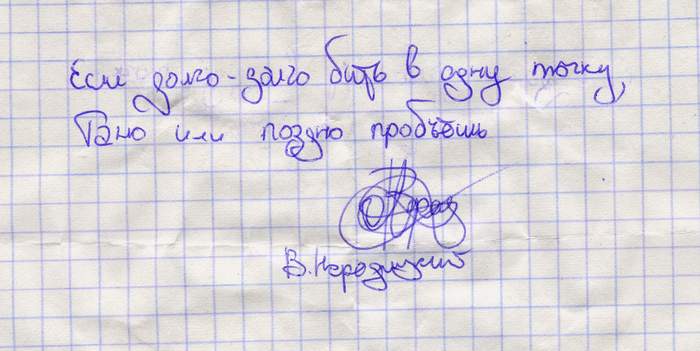 Если долго-долго бить в одну точку,
Рано или поздно пробъёшь
В. Народицкий